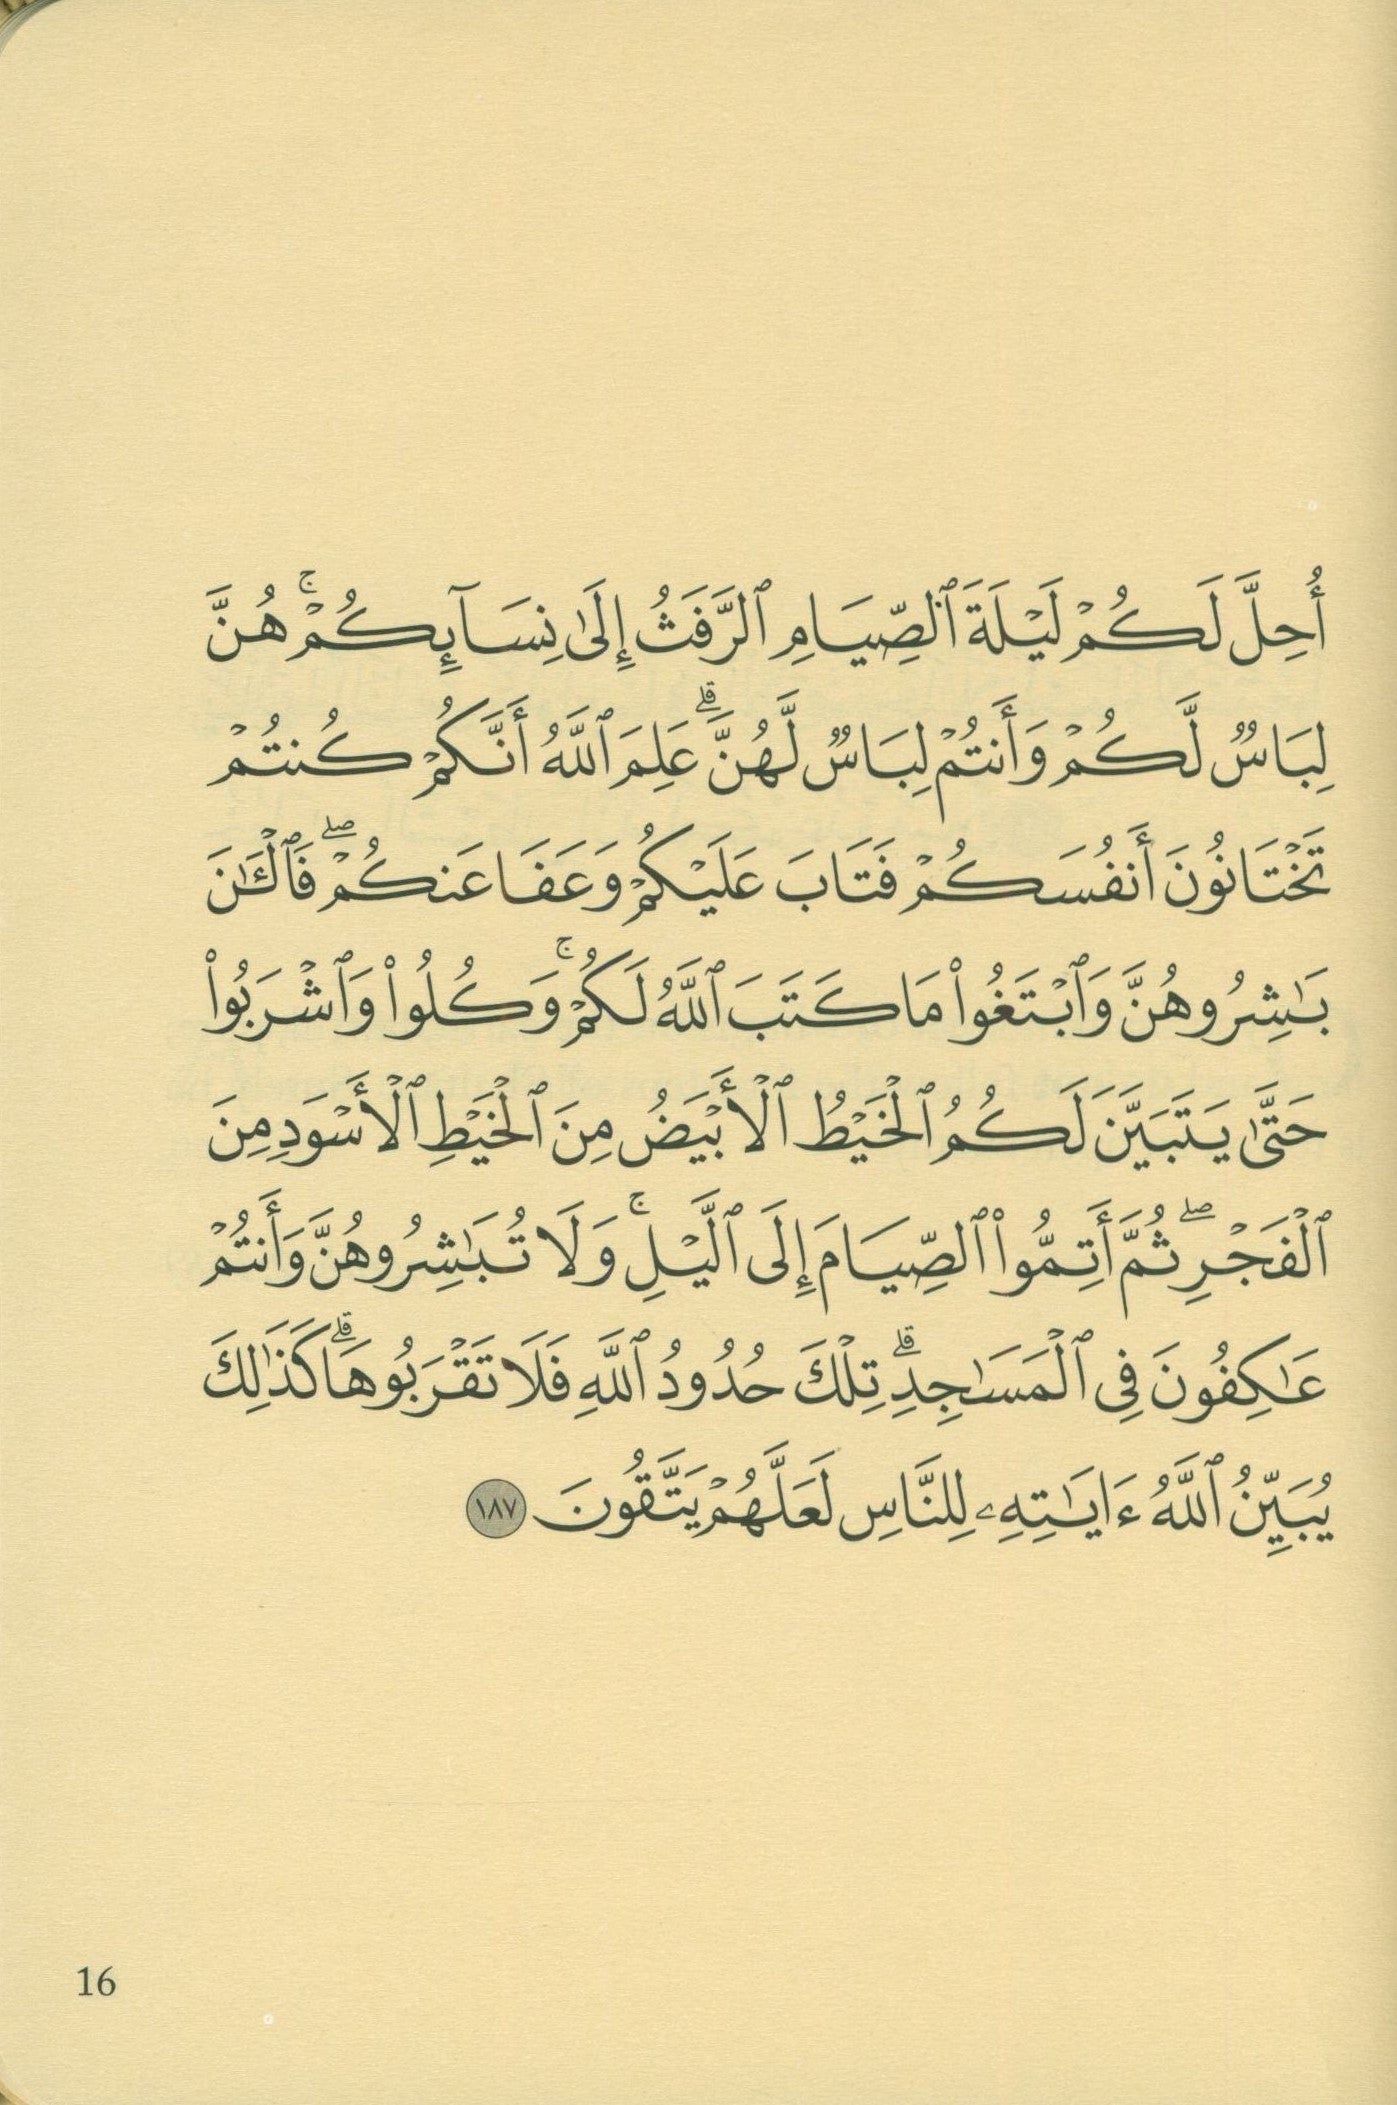 أُحِلَّ لَكُمْ لَيْلَةَ ٱلصِّيَامِ ٱلرَّفَثُ إِلَىٰ نِسَآئِكُمْ ۚ هُنَّ
لِبَاسٌ لَّكُمْ وَأَنتُمْ لِبَاسٌ لَّهُنَّ ۗ عَلِمَ ٱللَّهُ أَنَّكُمْ كُنتُمْ
تَخْتَانُونَ أَنفُسَكُمْ فَتَابَ عَلَيْكُمْ وَعَفَا عَنكُمْ ۖ فَٱلْـَٔـٰنَ
بَـٰشِرُوهُنَّ وَٱبْتَغُوا۟ مَا كَتَبَ ٱللَّهُ لَكُمْ ۚ وَكُلُوا۟ وَٱشْرَبُوا۟
حَتَّىٰ يَتَبَيَّنَ لَكُمُ ٱلْخَيْطُ ٱلْأَبْيَضُ مِنَ ٱلْخَيْطِ ٱلْأَسْوَدِ مِنَ
ٱلْفَجْرِ ۖ ثُمَّ أَتِمُّوا۟ ٱلصِّيَامَ إِلَى ٱلَّيْلِ ۚ وَلَا تُبَـٰشِرُوهُنَّ وَأَنتُمْ
عَـٰكِفُونَ فِى ٱلْمَسَـٰجِدِ ۗ تِلْكَ حُدُودُ ٱللَّهِ فَلَا تَقْرَبُوهَا ۗ كَذَٰلِكَ
يُبَيِّنُ ٱللَّهُ ءَايَـٰتِهِۦ لِلنَّاسِ لَعَلَّهُمْ يَتَّقُونَ ١٨٧
16